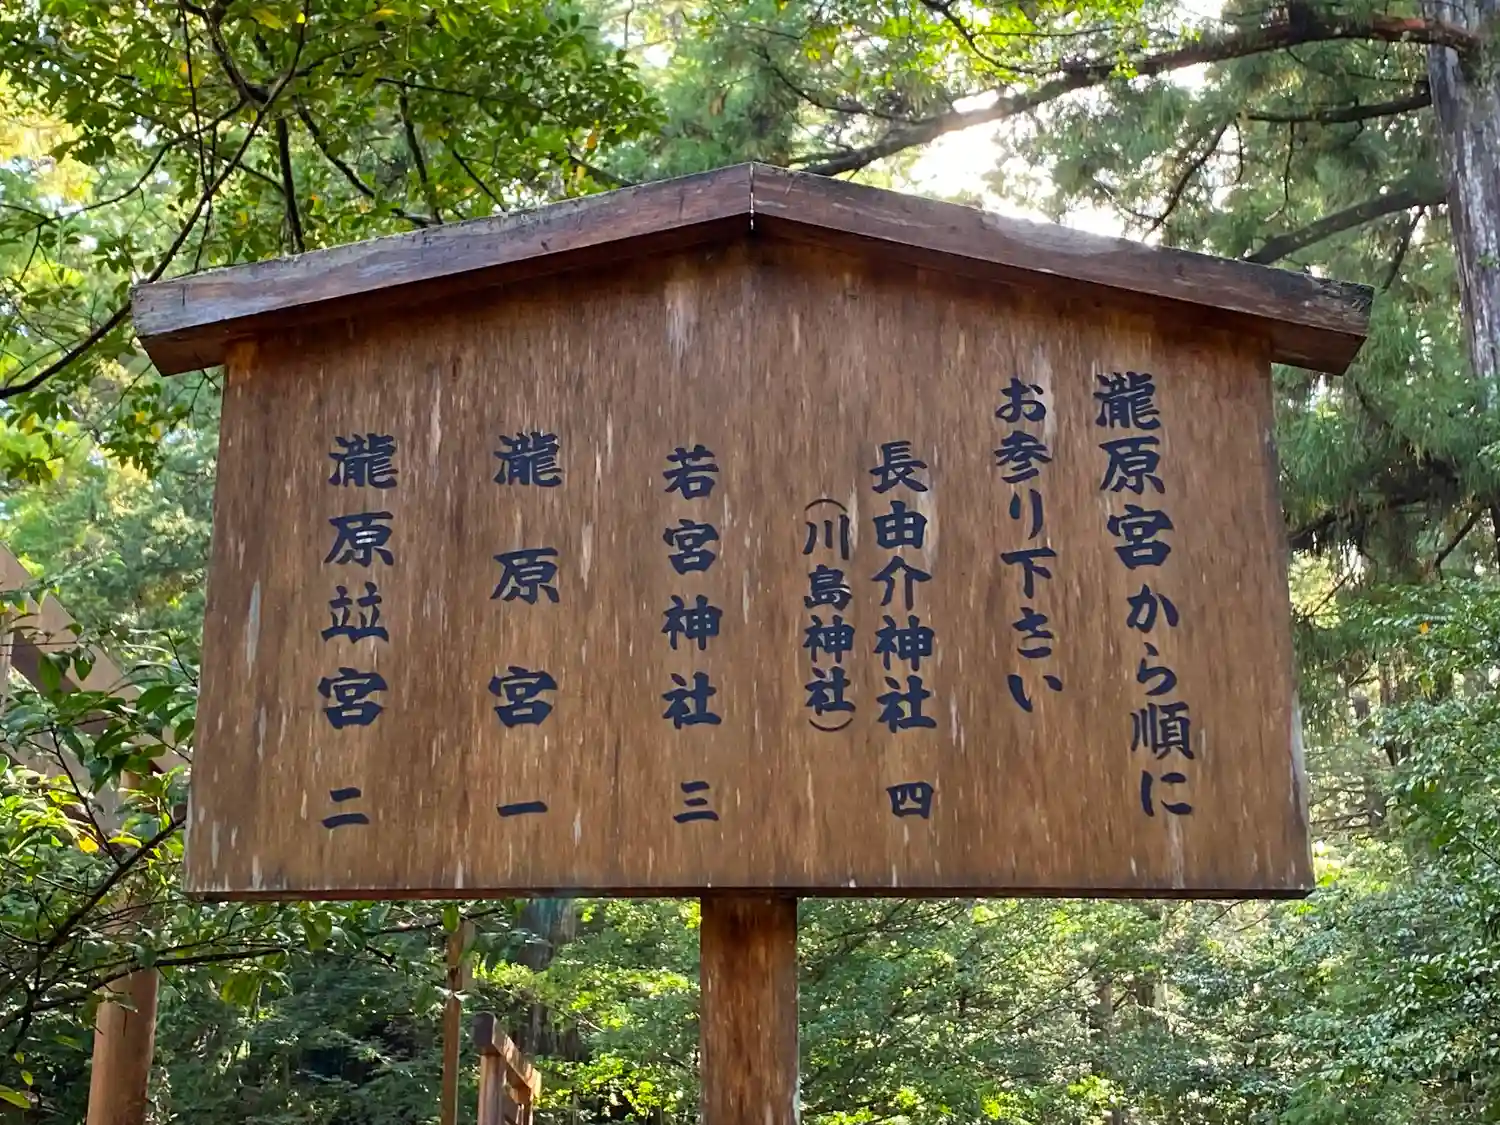 瀧原宮から順に
お参り下さい
長由介神社 四
（川島神社）
若宮神社 三
瀧原宮 一
瀧原竝宮 二